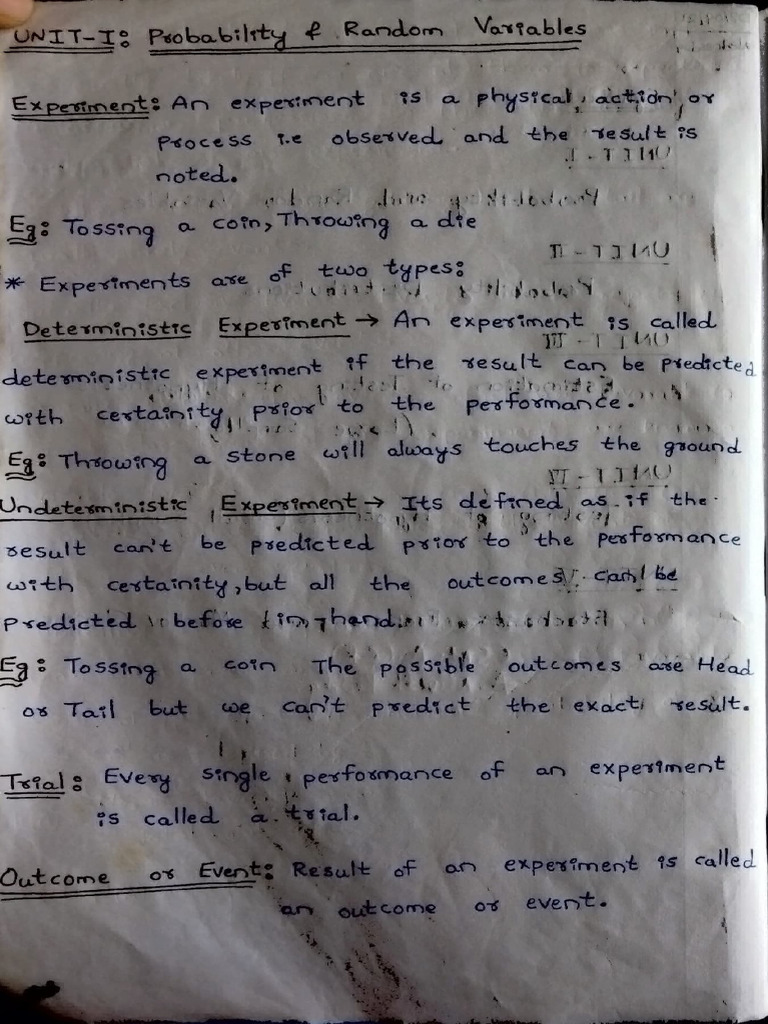 UNIT-I: Probability & Random Variables
Experiment: An experiment is a physical action or
Process i.e observed and the result is
noted.
Eg: Tossing a coin, Throwing a die
* Experiments are of two types:
Deterministic Experiment → An experiment is called
deterministic experiment if the result can be predicted
with certainity prior to the performance.
Eg: Throwing a stone will always touches the ground
Undeterministic Experiment → Its defined as if the
result can't be predicted prior to the performance
with certainity, but all the outcomes can be
predicted before in hand.
Eg: Tossing a coin The possible outcomes are Head
or Tail but we can't predict the exact result.
Trial: Every single performance of an experiment
is called a trial.
Outcome or Event: Result of an experiment is called
an outcome or event.